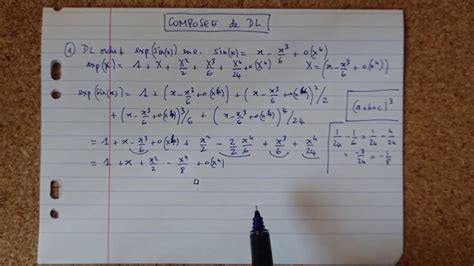 COMPOSEE de DL
① DL ordre 4 exp(sin(x)) en 0. sin(x) = x - x³/6 + o(x⁴)
exp(X) = 1 + X + X²/2 + X³/6 + X⁴/24 + o(X⁴) X = (x - x³/6 + o(x⁴))
exp(sin(x)) = 1 + (x - x³/6 + o(x⁴)) + (x - x³/6 + o(x⁴))²/2
+ (x - x³/6 + o(x⁴))³/6 + (x - x³/6 + o(x⁴))⁴/24
(a+b+c)³
= 1 + x - x³/6 + o(x⁴) + x²/2 - 2/2 x⁴/6 + x³/6 + x⁴/24
= 1 + x + x²/2 - x⁴/8 + o(x⁴)
1/24 - 1/6 = 1/24 - 4/24
= -3/24 = -1/8